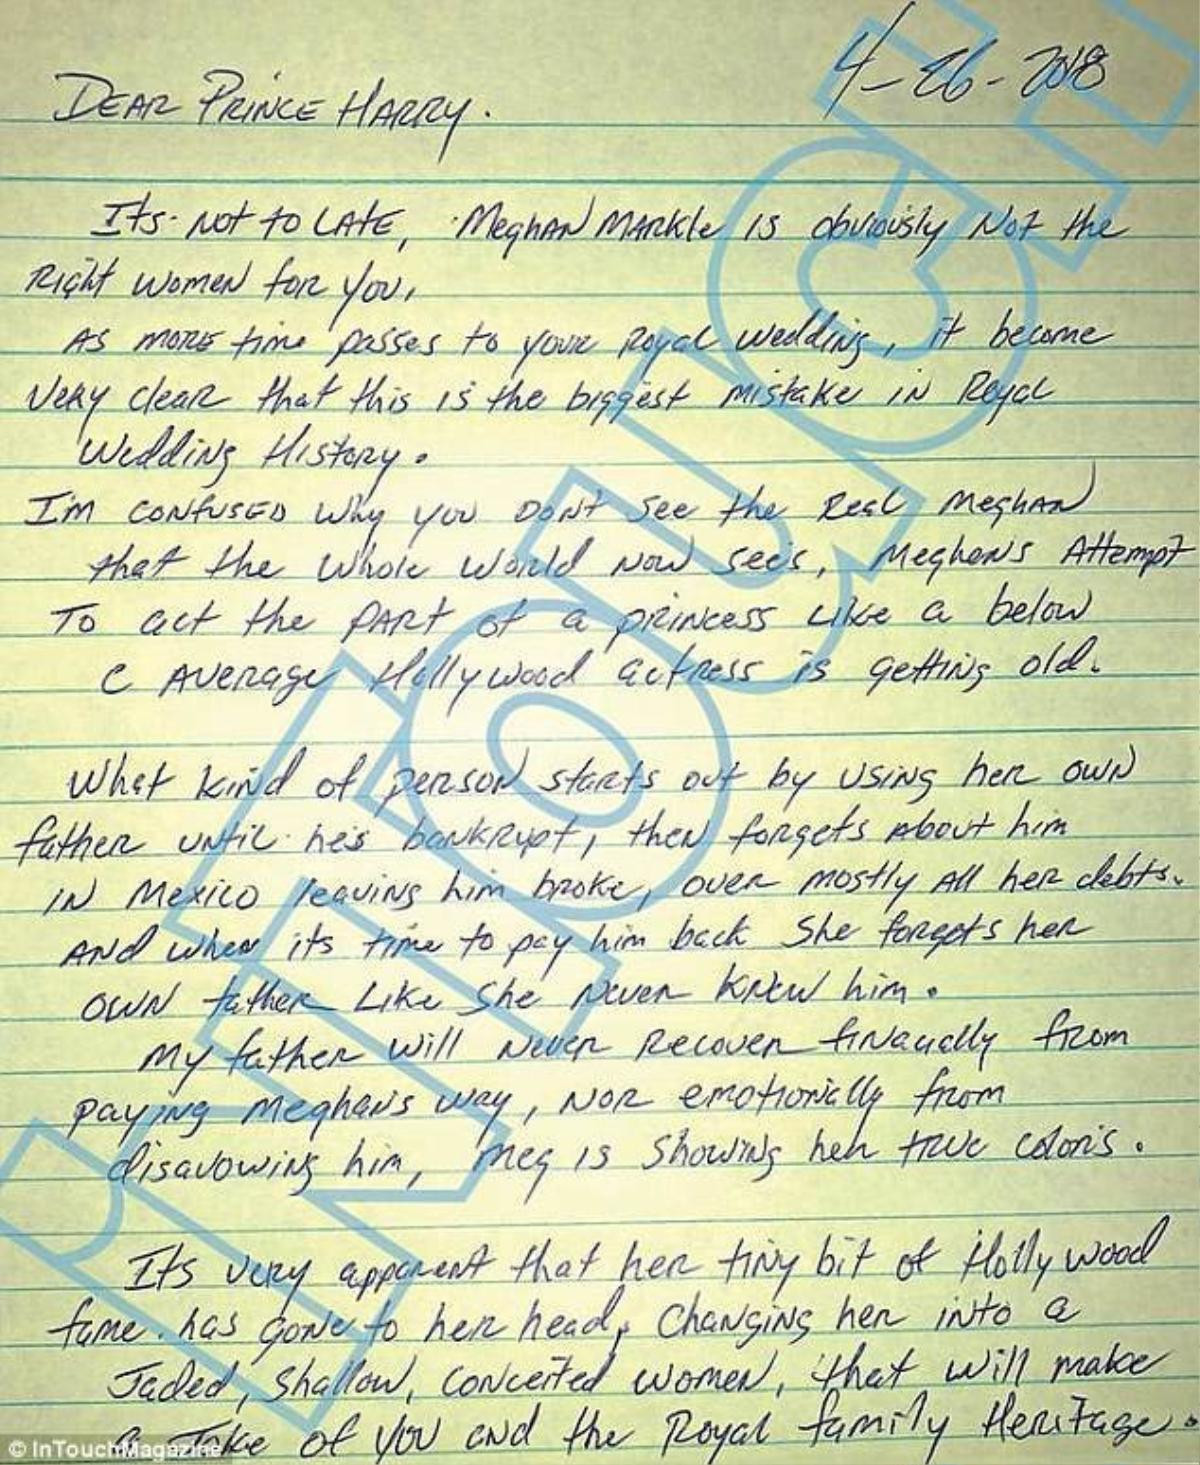 4-26-2018
DEAR PRINCE HARRY.
Its. NOT to LATE, Meghan MARKle is obviously Not the
Right women for you,
AS MORE time passes to your Royal wedding, it become
Very clear that this is the biggest mistake in Royal
Wedding History.
I'm CONFUSED Why you DON't see the Real Meghan
that the whole world Now sees, Meghan's Attempt
To act the PART of a princess Like a below
C AVERAGE Hollywood actress is getting old.
What kind of person starts out by using her own
father until he's bankrupt, then forgets About him
IN Mexico leaving him broke, over mostly All her debts.
AND when its time to pay him back She forgets her
OWN father Like She Never Knew him.
My father will Never Recover finacually from
paying Meghan's way, NOR emotionally from
disavowing him, Meg is Showing her true colors.
It's very apparent that her tiny bit of Hollywood
fame has gone to her head, Changing her into a
Jaded, Shallow, conceited women, that will make
a Joke of you and the Royal family Heritage.
INTOUCH
© InTouchMagazine